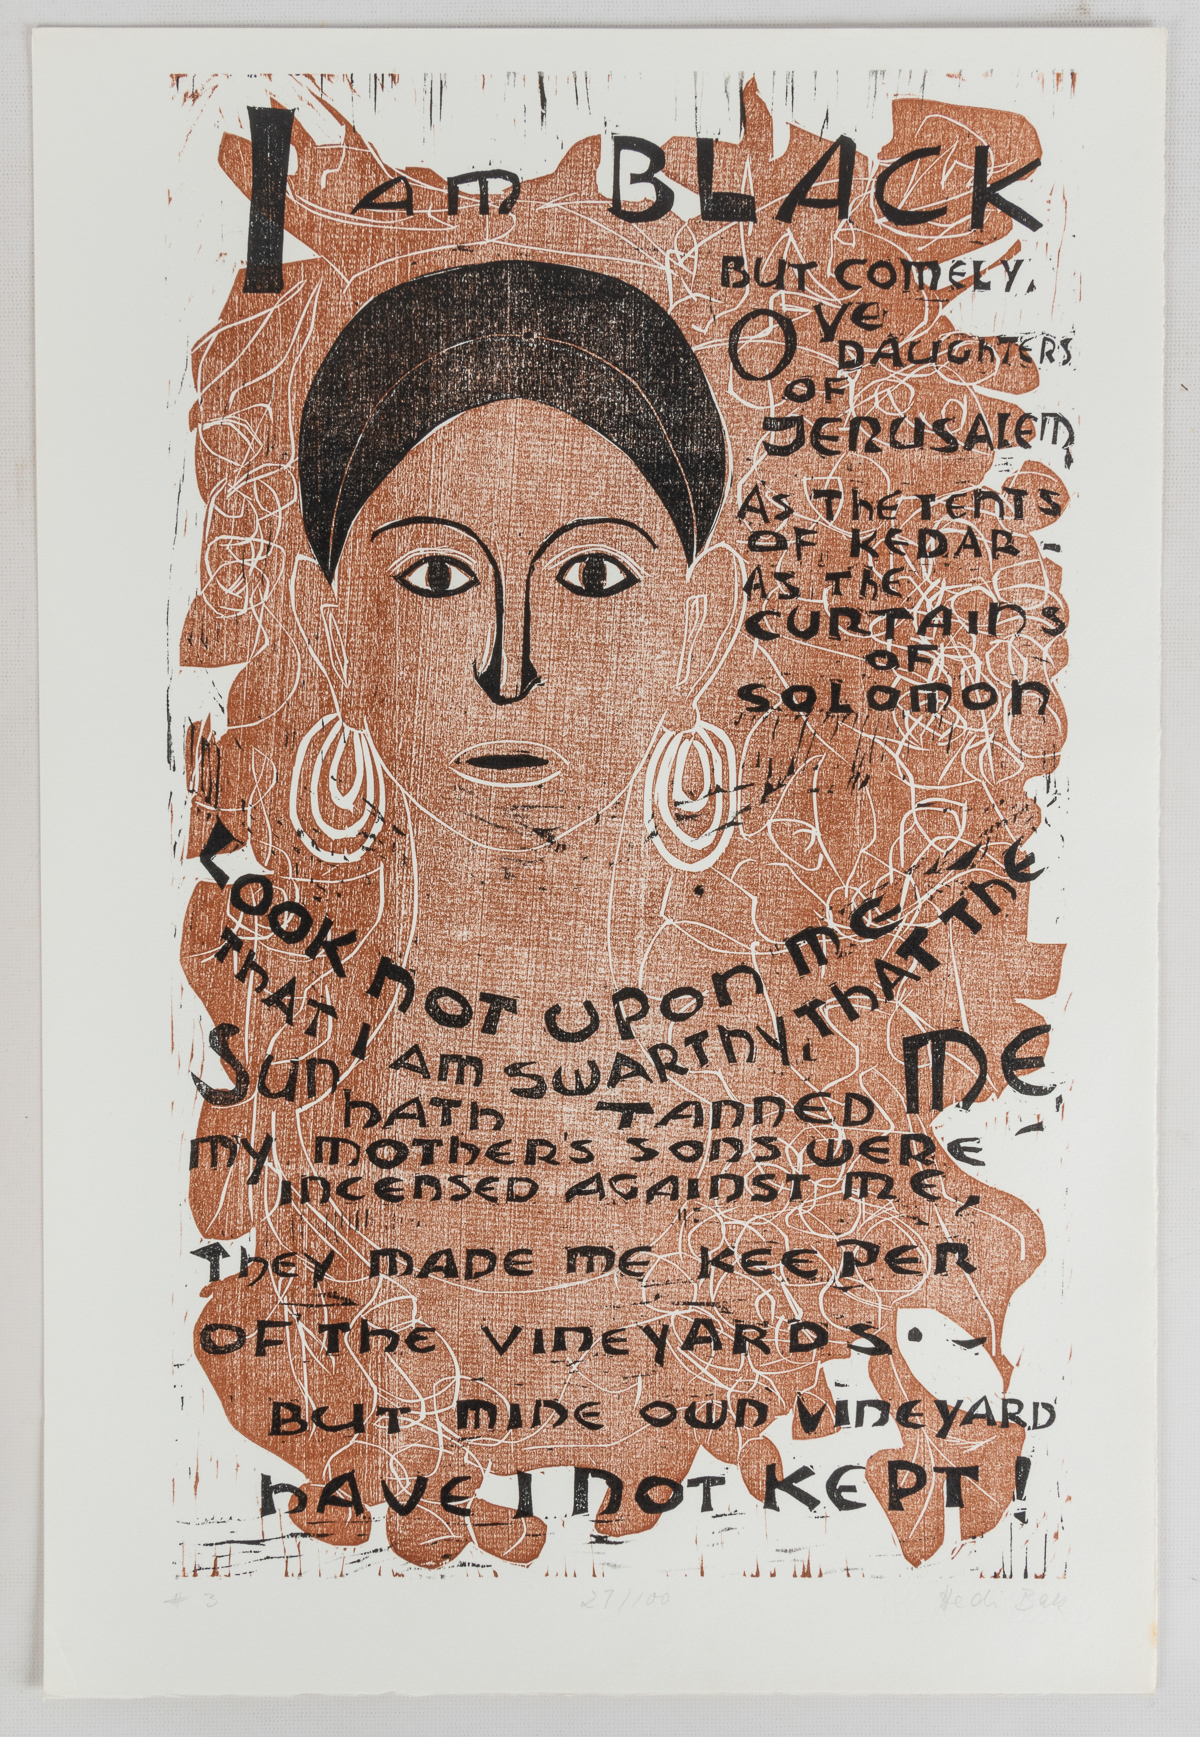 I am BLACK
BUT COMELY,
O YE
DAUGHTERS
OF
JERUSALEM
AS THE TENTS
OF KEDAR -
AS THE
CURTAINS
OF
SOLOMON
LOOK NOT UPON ME
THAT I AM SWARTHY, THAT THE
SUN HATH TANNED ME,
MY MOTHER'S SONS WERE
INCENSED AGAINST ME,
THEY MADE ME KEEPER
OF THE VINEYARDS -
BUT MINE OWN VINEYARD
HAVE I NOT KEPT!
# 3 27/100 Hedi Bak